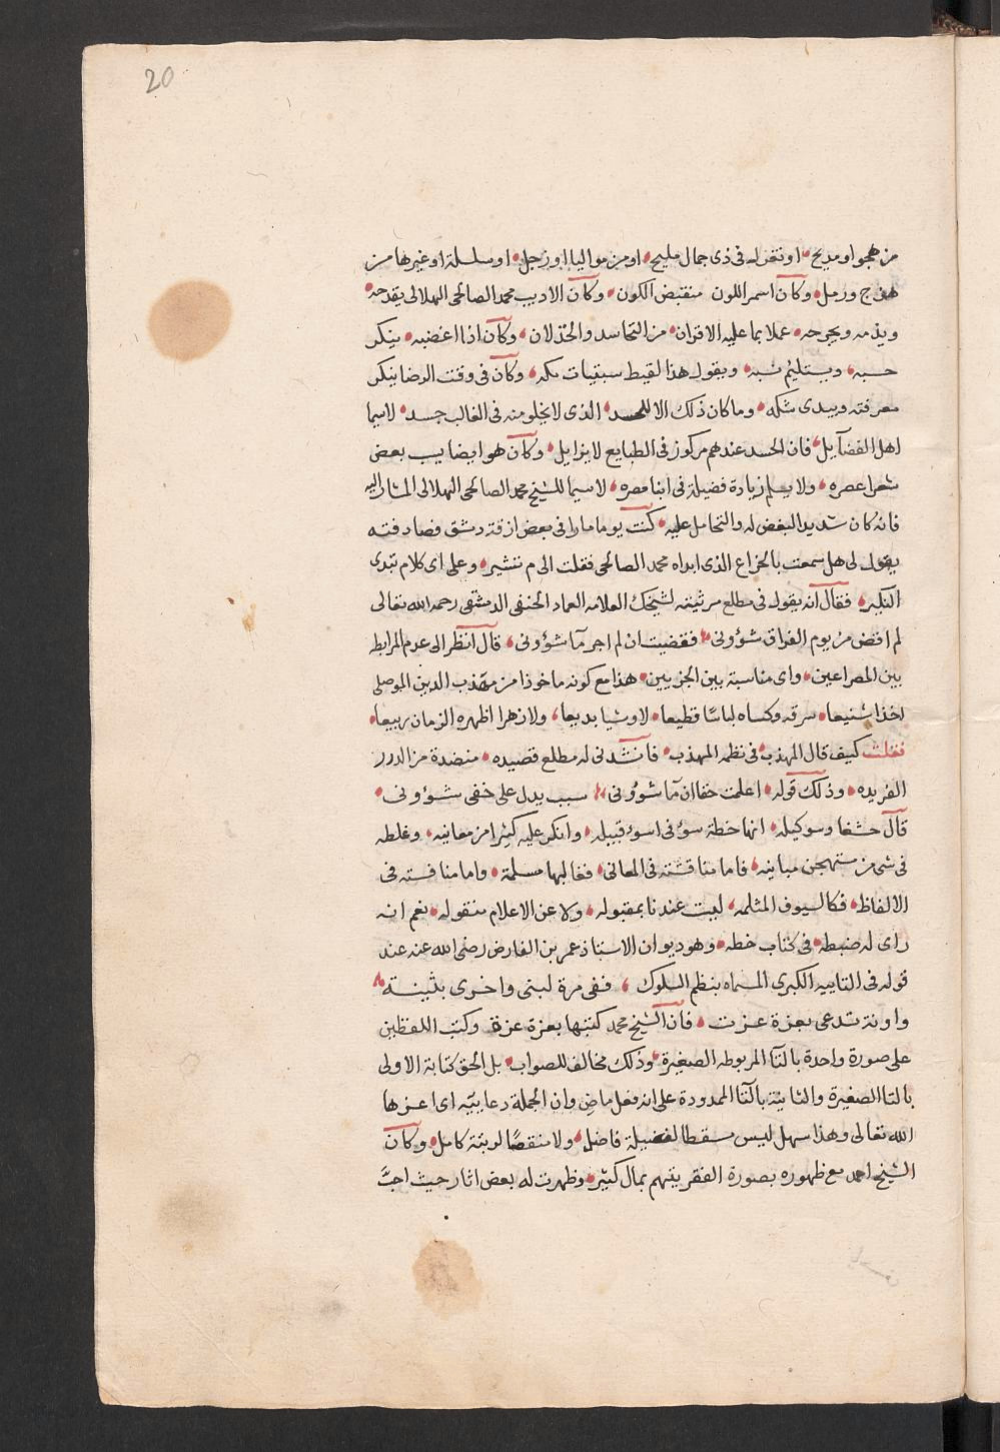 20
من هجو او مديح، او تغزله فى ذى جمال مليح، او من مواليا او زجل، او سلسلة او غيرها من
هزج ورمل، وكان اسمر اللون منقبض الكون، وكان الاديب محمد الصالحى الهلالى يقدحه
ويذمه ويجرحه، عملا بما عليه الاقران، من التحاسد والخذلان، وكان اذا اغضبه، ينكر
حسبه، ويستليم نسبه، ويقول هذا لقيط سبتيات مكه، وكان فى وقت الرضا ينكر
معرفته ويبدى شكه، وما كان ذلك الا للحسد، الذى لا يخلو منه فى الغالب جسد، لاسيما
اهل الفضآيل، فان الحسد عندهم مركوز فى الطبايع لا يزايل، وكان هو ايضا يسب بعض
شعرا عصره، ولا يسلم زيادة فضيلة فى ابنا مصره، لاسيما للشيخ محمد الصالحى الهلالى المشار اليه
فانه كان شديد البغض له والتحامل عليه، كنت يوما مارا فى بعض ازقة دمشق فصادفته
يقول لى هل سمعت بالخزاع الذى ابداه محمد الصالحى فقلت الى م تشير، وعلى اى كلام تبدى
النكير، فقال انه يقول فى مطلع مرثيته لشيخك العلامه العماد الحنفى الدمشقى رحمه الله تعالى
لم اقض من يوم الفراق شؤونى، فقضيت ان لم اجر مآ شؤونى، قال انظر الى عدم المرابطه
بين المصراعين، واى مناسبة بين الجزيين، هذا مع كونه ماخوذا من مهذب الدين الموصلى
اخذا شنيعا، سرقه وكساه لباسًا قطيعا، لا وشيا بديعا، ولا زهرا اظهره الزمان ربيعا،
فقلت كيف قال المهذب، فى نظمه المهذب، فانشدنى له مطلع قصيده، منضدة من الدرر
الفريده، وذلك قوله، اعلمت حقا ان مآ شوؤنى، سبب يدل على خفى شؤونى،
قال حشفا وسوكيله، انها خطة سوٴ فى اسوٴ قبيله، وانكر عليه كثيرا من معانيه، وغلطه
فى شى من مستهجن مباينه، فاما مناقشته فى المعانى، فغالبها مسلمة، واما منافسته فى
الالفاظ، فكالسيوف المثلمه، ليست عندنا بمقبوله، ولا عن الاعلام منقوله، نعم انه
راى له ضبطه، فى كتاب خطه، وهو ديوان الاستاذ عمر بن الفارض رضى الله عنه عند
قوله فى التاييه الكبرى المسماه بنظم السلوك، ففى مرة لبنى واخرى بثينة
واونة تدعى بعزة عزت، فان الشيخ محمد كتبها بعزة عزة وكتب اللفظين
على صورة واحدة بالتآ المربوطه الصغيرة، وذلك مخالف للصواب، بل الحق كتابة الاولى
بالتا الصغيرة والثانية بالتآ الممدودة على انه فعل ماض وان الجملة دعاييّه اى اعزها
الله تعالى وهذا سهل ليس مسقطا لفضيلة فاضل، ولا منقصًا لرتبة كامل، وكان
الشيخ احمد مع ظهوره بصورة الفقر يتهم بمال كثير، وظهرت له بعض اثار حيث احبّ